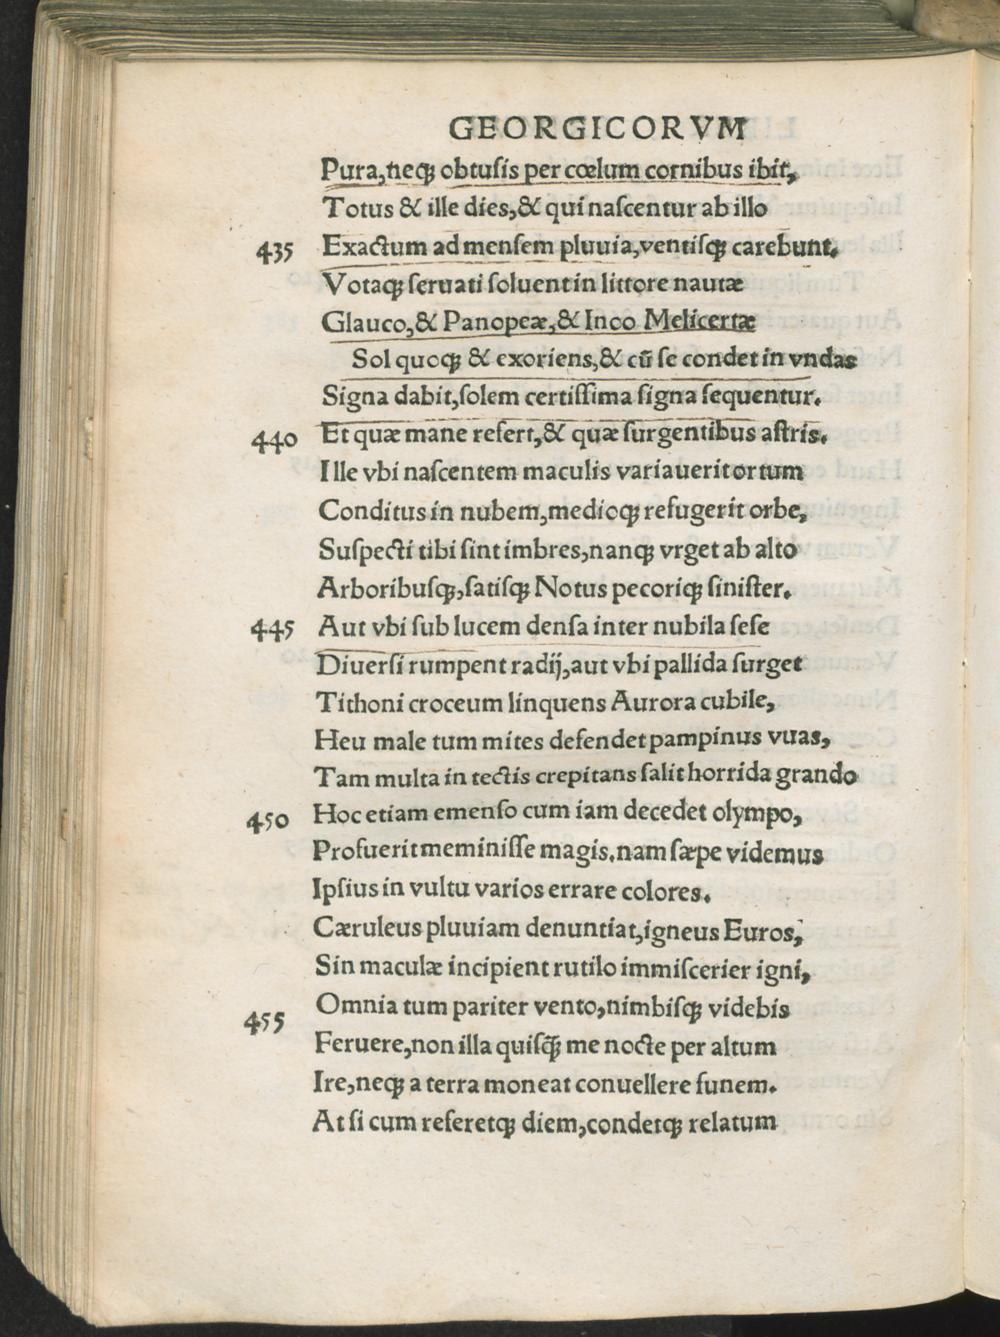 GEORGICORVM
Pura,neqꝫ obtuſis per cœlum cornibus ibit,
Totus & ille dies,& qui naſcentur ab illo
435 Exactum ad menſem pluuia,ventiſqꝫ carebunt.
Votaqꝫ ſeruati ſoluent in littore nautæ
Glauco,& Panopeæ,& Inoo Melicertæ
Sol quoqꝫ & exoriens,& cū ſe condet in vndas
Signa dabit,ſolem certiſſima ſigna ſequentur.
440 Et quæ mane refert,& quæ ſurgentibus aſtris.
Ille vbi naſcentem maculis variauerit ortum
Conditus in nubem,medioqꝫ refugerit orbe,
Suſpecti tibi ſint imbres,nanqꝫ vrget ab alto
Arboribuſqꝫ,ſatiſqꝫ Notus pecoriqꝫ ſiniſter.
445 Aut vbi ſub lucem denſa inter nubila ſeſe
Diuerſi rumpent radij,aut vbi pallida ſurget
Tithoni croceum linquens Aurora cubile,
Heu male tum mites defendet pampinus vuas,
Tam multa in tectis crepitans ſalit horrida grando
450 Hoc etiam emenſo cum iam decedet olympo,
Profuerit meminiſſe magis.nam ſæpe videmus
Ipſius in vultu varios errare colores.
Cæruleus pluuiam denuntiat,igneus Euros,
Sin maculæ incipient rutilo immiſcerier igni,
455 Omnia tum pariter vento,nimbiſqꝫ videbis
Feruere,non illa quiſq̄ꝫ me nocte per altum
Ire,neqꝫ a terra moneat conuellere funem.
At ſi cum referetqꝫ diem,condetqꝫ relatum